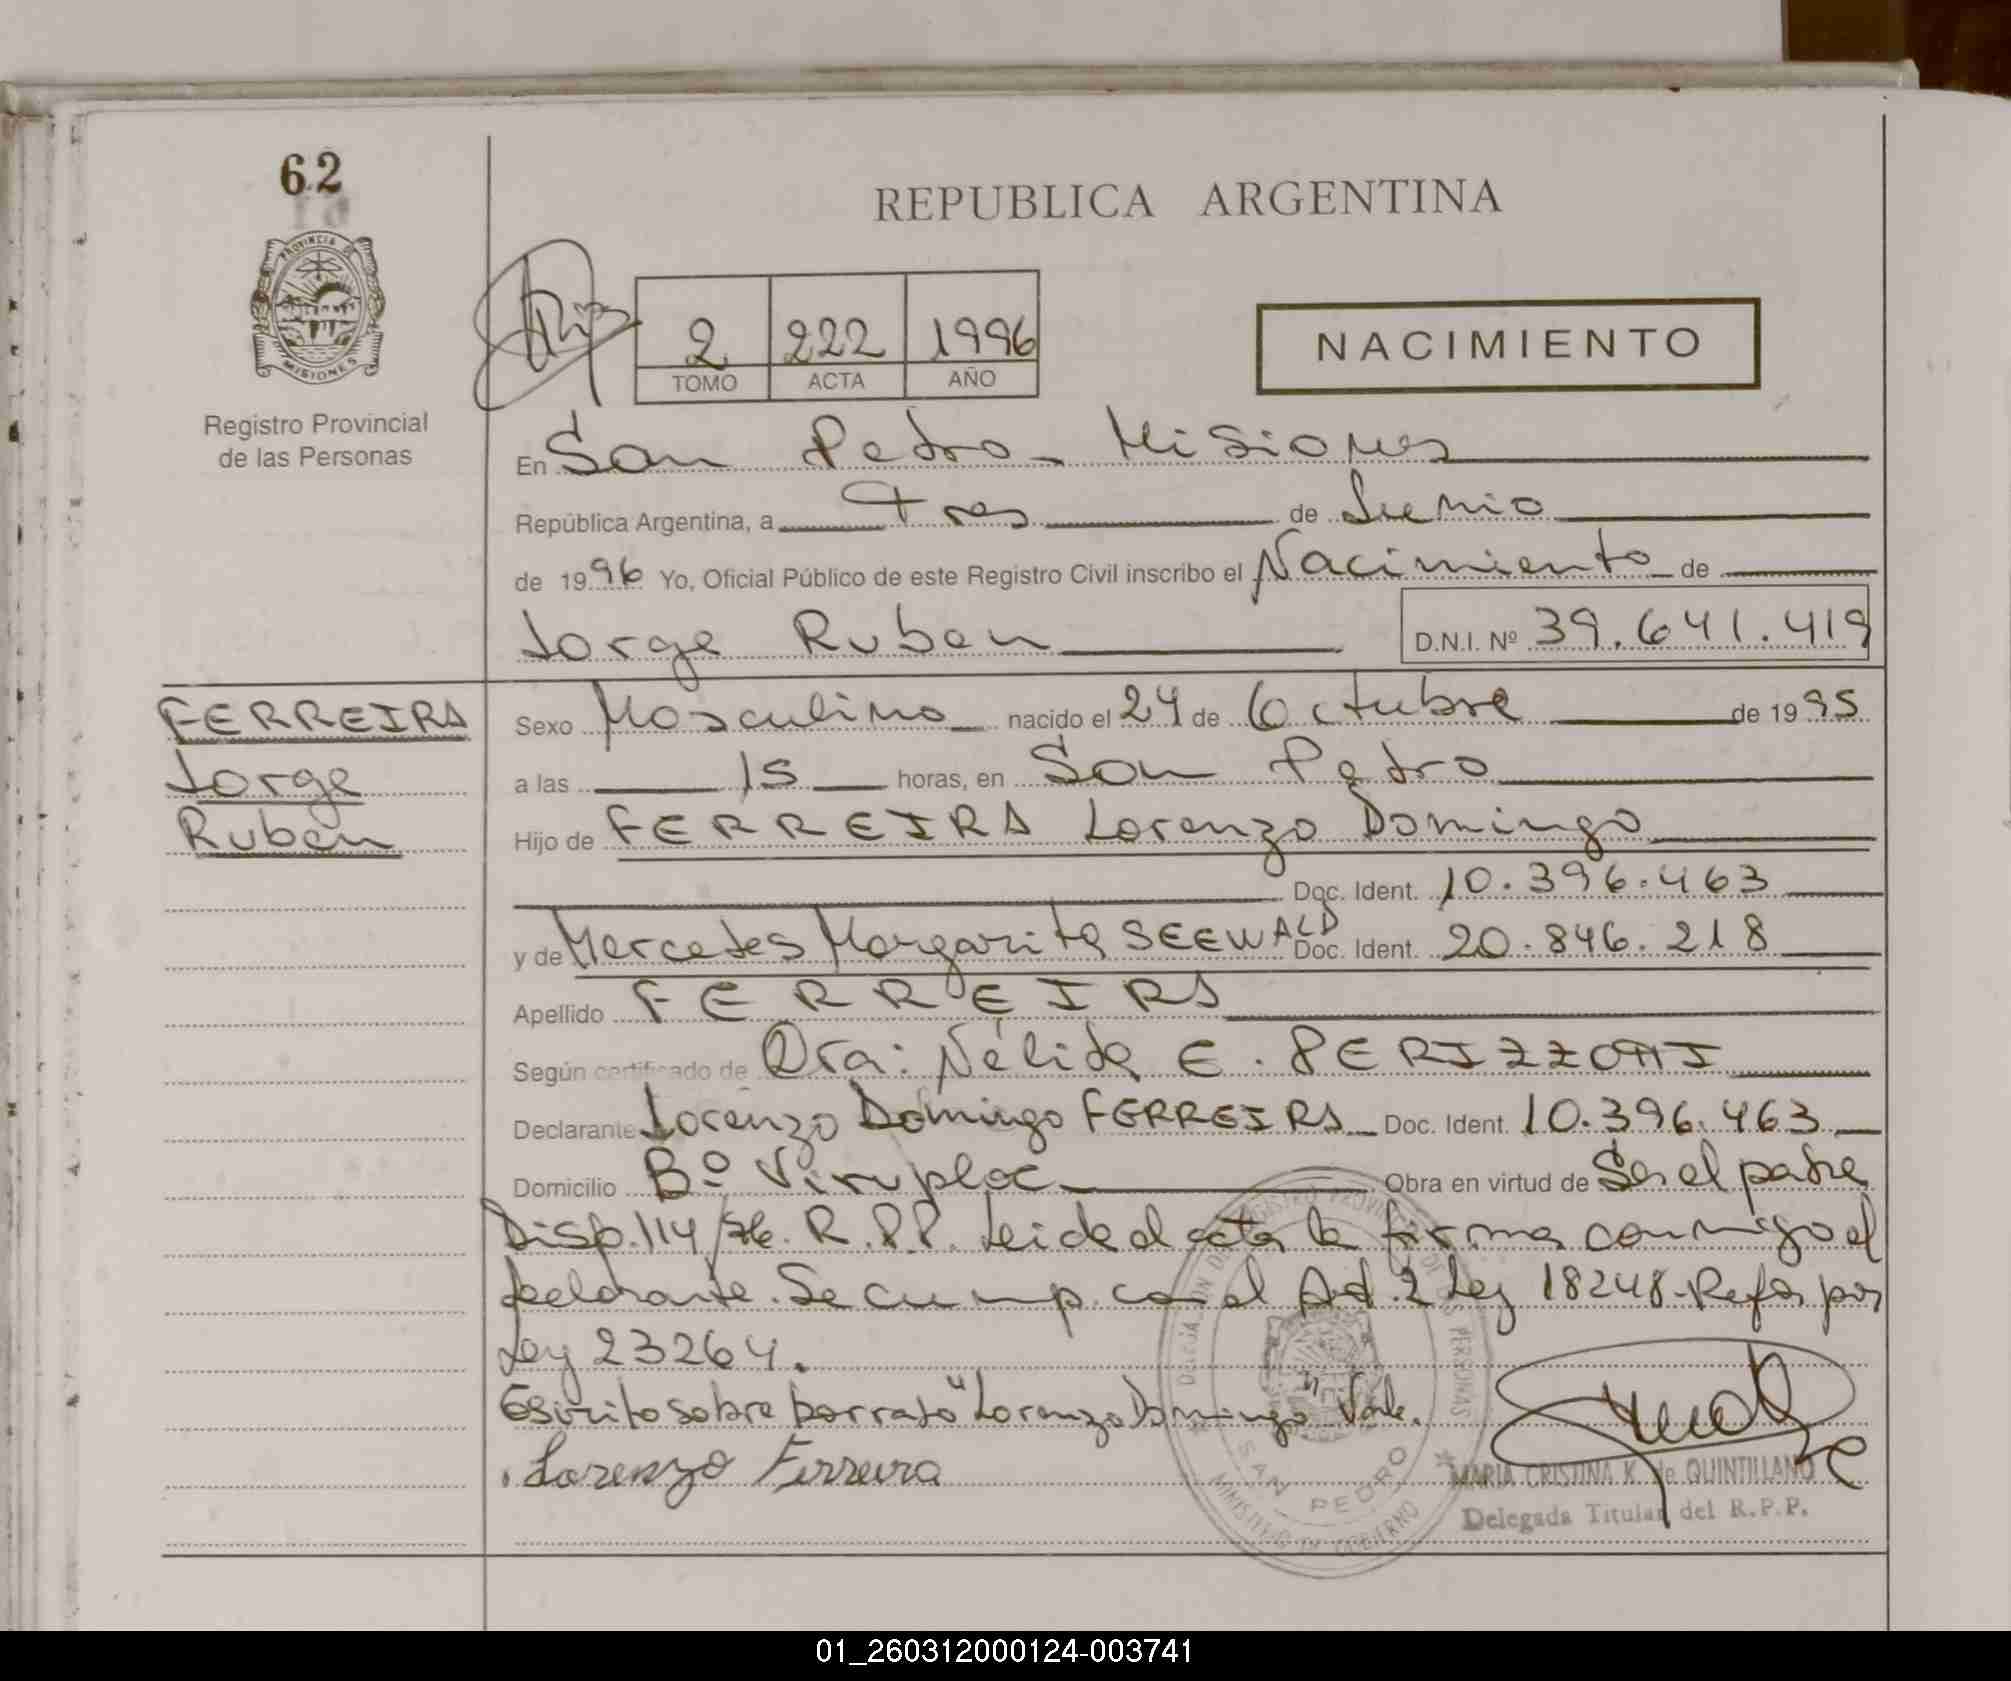 62
REPUBLICA ARGENTINA
PROVINCIA DE MISIONES
Registro Provincial
de las Personas
2 222 1996
TOMO ACTA AÑO
NACIMIENTO
En San Pedro - Misiones
República Argentina, a tres de Junio
de 1996 Yo, Oficial Público de este Registro Civil inscribo el Nacimiento de
Jorge Ruben D.N.I. Nº 39.641.419
FERREIRA
Jorge
Ruben
Sexo Masculino nacido el 24 de Octubre de 1995
a las 15 horas, en San Pedro
Hijo de FERREIRA Lorenzo Domingo
Doc. Ident. 10.396.463
y de Mercedes Margarita SEEWALD Doc. Ident. 20.846.218
Apellido FERREIRA
Según certificado de Dra: Nélida E. PERIZZOTTI
Declarante Lorenzo Domingo FERREIRA Doc. Ident. 10.396.463
Domicilio Bº Viruploc Obra en virtud de Ser el padre
Disp. 114/76. R.P.P. Leida el acta la firma conmigo el
declarante. Se cump. con el Art. 2 Ley 18248 - Refor por
Ley 23264.
Escrito sobre borrado "Lorenzo Domingo" Vale.
Lorenzo Ferreira
SAN PEDRO
MINISTERIO DE GOBIERNO
MARIA CRISTINA K. de QUINTILLANO
Delegada Titular del R.P.P.
01_260312000124-003741